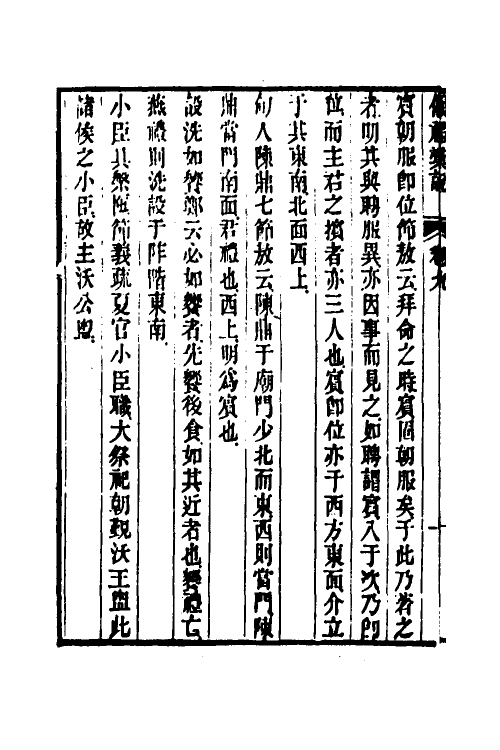 儀禮集說　卷九　十
賓朝服即位節敖云拜命之時賓固朝服矣于此乃著之
者明其與聘服異亦因事而見之如聘謂賓入于次乃即
位而主君之擯者亦三人也賓即位亦于西方東面介立
于其東南北面西上
甸人陳鼎七節敖云陳鼎于廟門少北而東西則當門陳
鼎當門南面君禮也西上明爲賓也
設洗如饗鄭云必如饗者先饗後食如其近者也饗禮亡
燕禮則洗設于阼階東南
小臣具槃匜節義疏夏官小臣職大祭祀朝覲沃王盥此
諸侯之小臣故主沃公盥